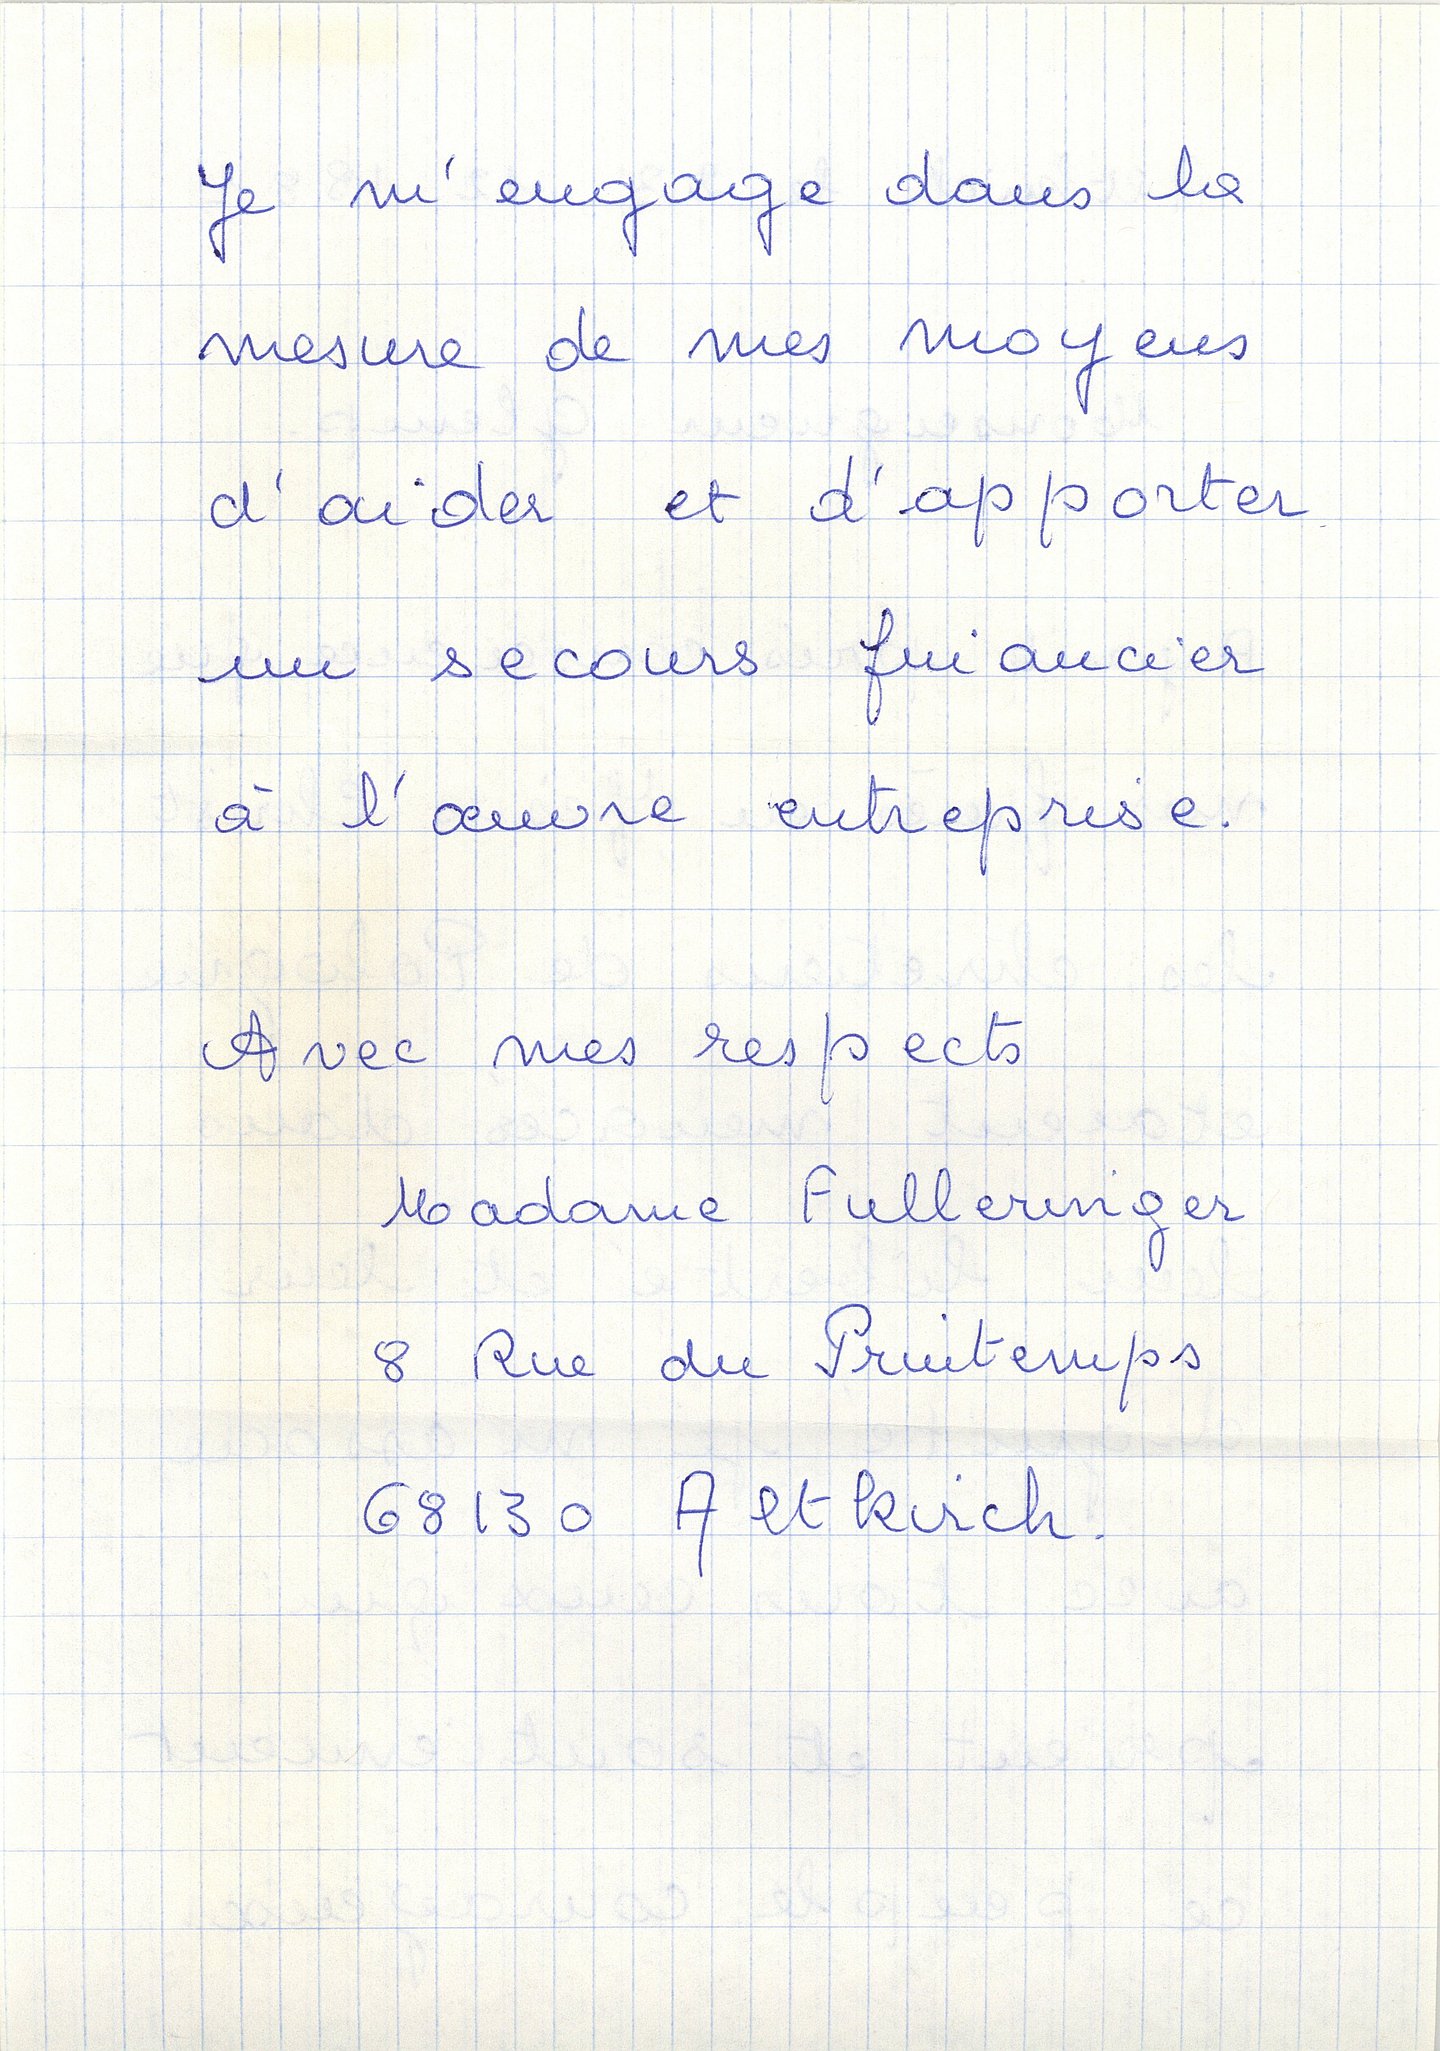 Je m'engage dans la
mesure de mes moyens
d'aider et d'apporter
un secours financier
à l'œuvre entreprise.
Avec mes respects
Madame Fulleringer
8 Rue du Printemps
68130 Altkirch.